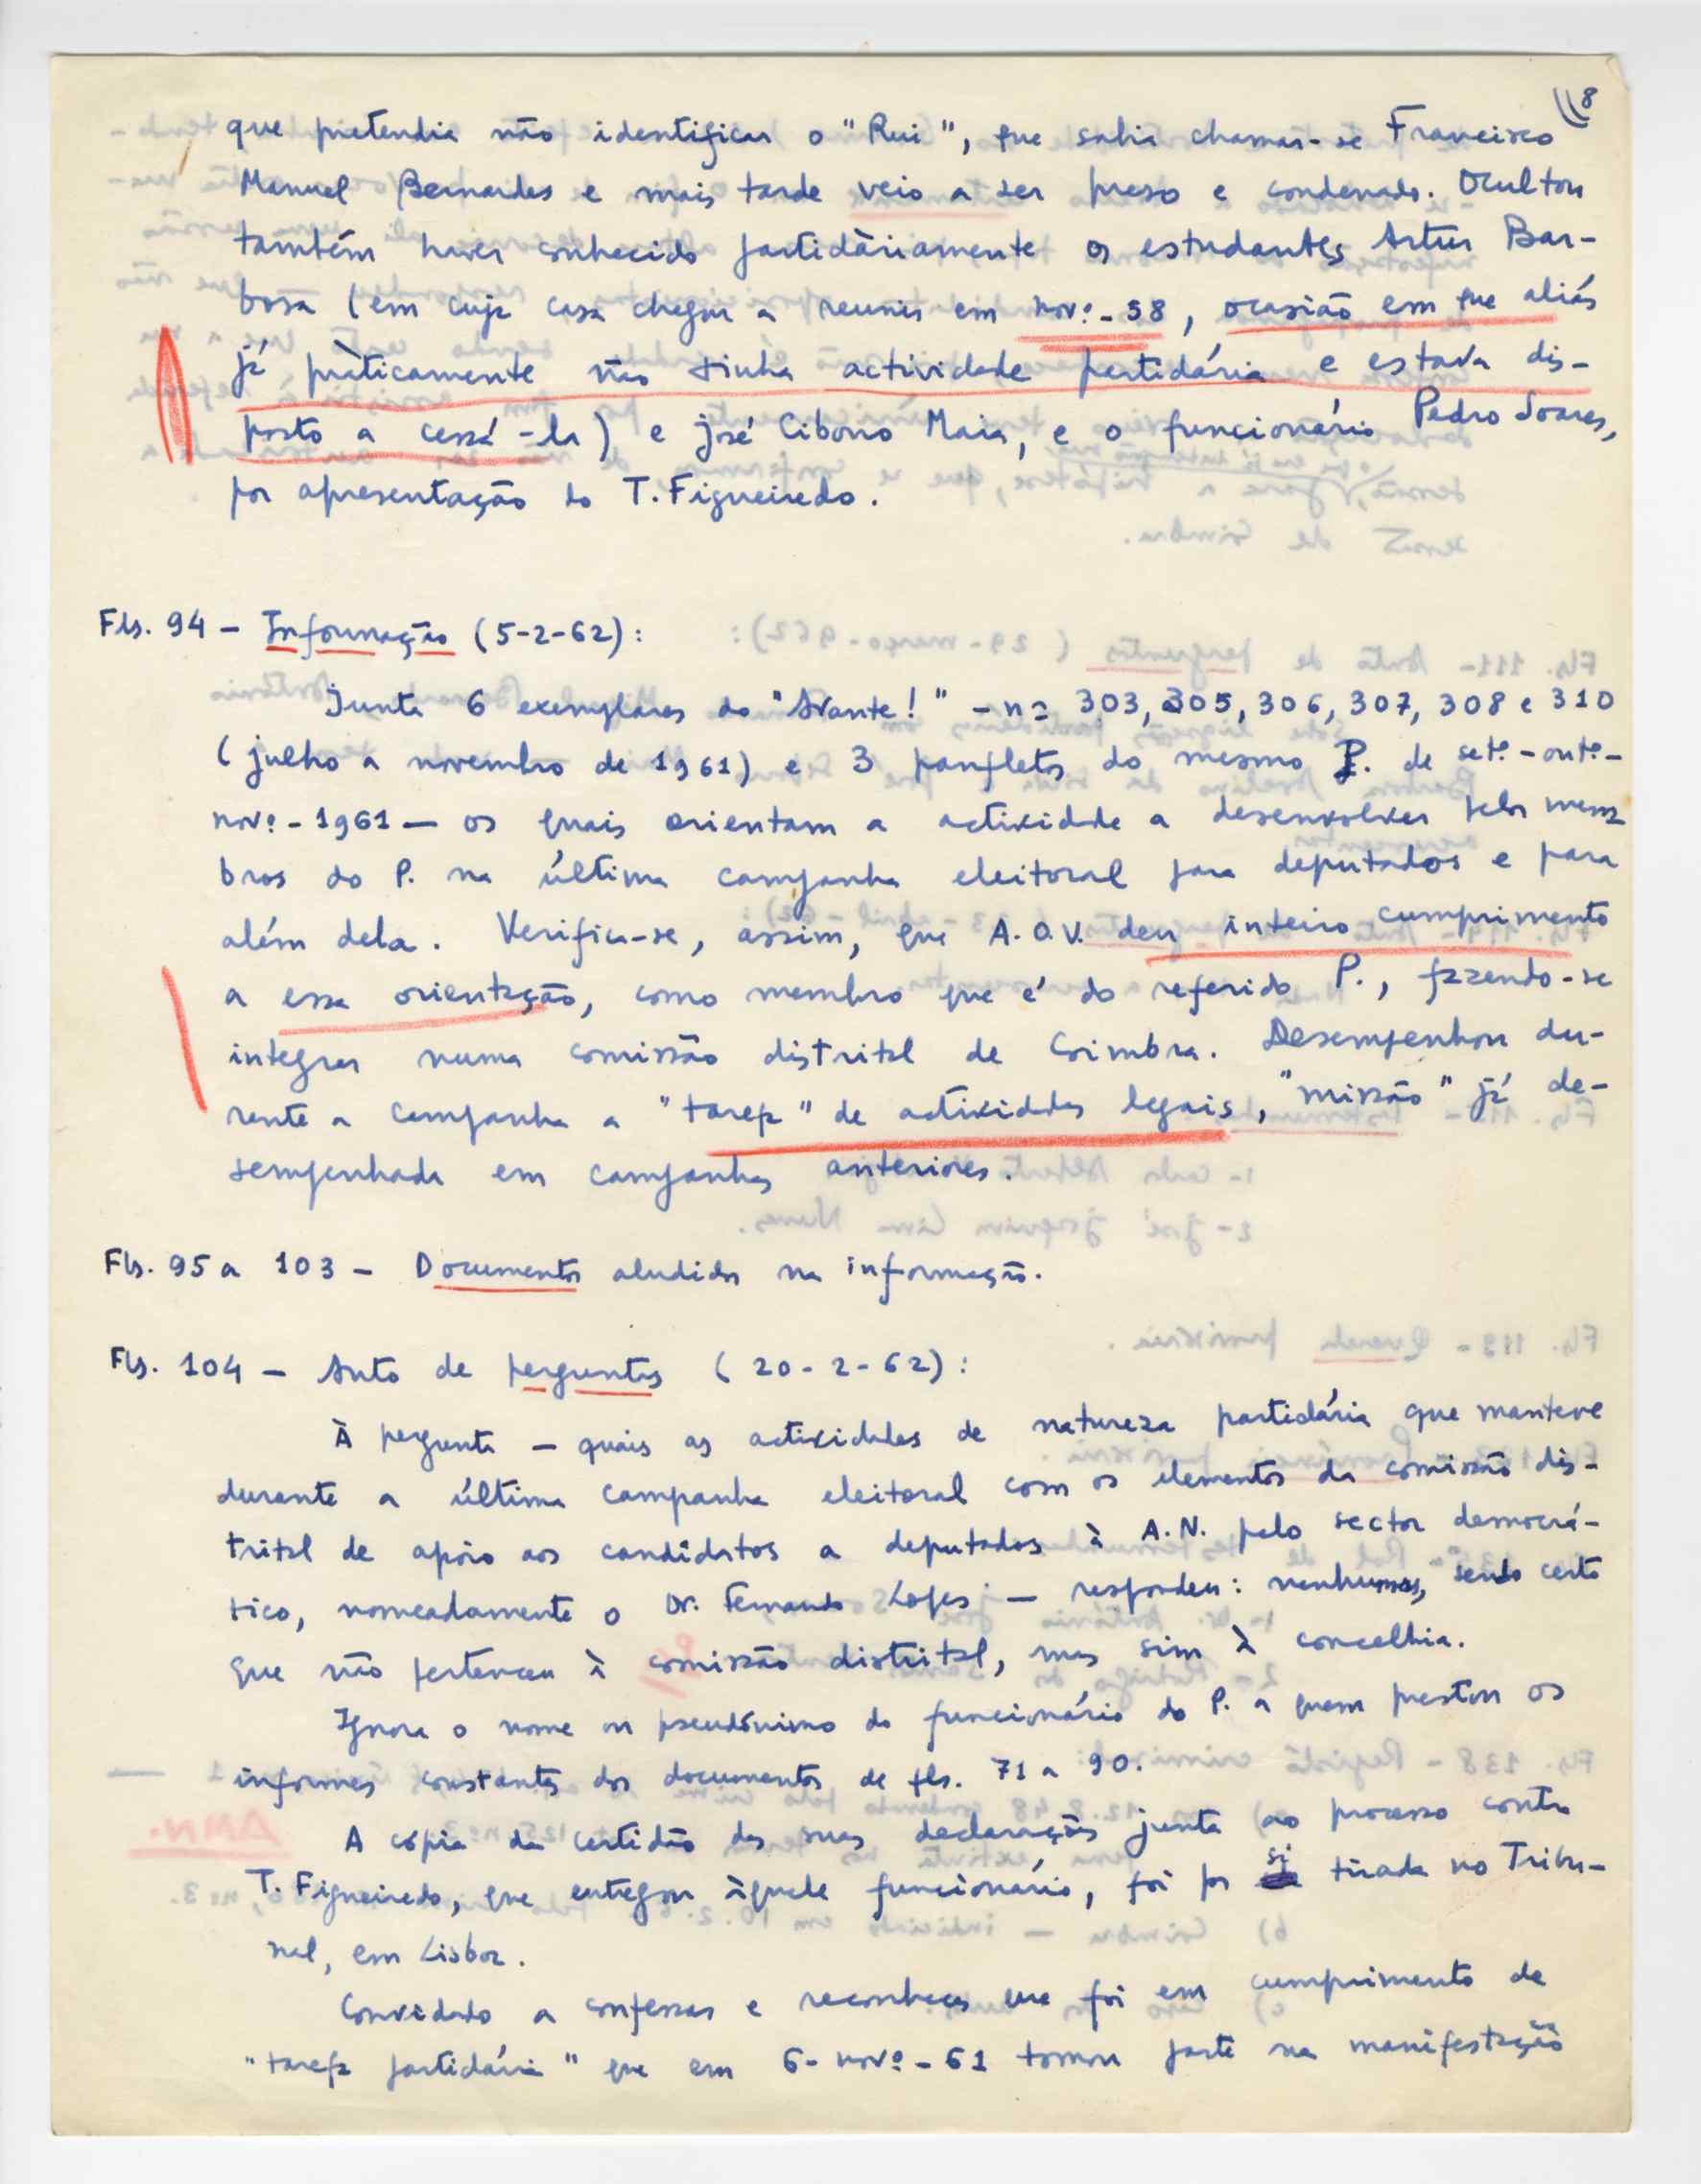 8
que pretendia não identificar o "Rui", que sabia chamar-se Francisco
Manuel Bernardes e mais tarde veio a ser preso e condenado. Ocultou
também haver conhecido partidàriamente os estudantes Artur Bar-
bosa (em cuja casa chegou a reunir em nov.º-58, ocasião em que aliás
já pràticamente não tinha actividade partidária e estava dis-
posto a cessá-la) e José Cibono Maia, e o funcionário Pedro Soares,
por apresentação do T. Figueiredo.
Fls. 94 - Informação (5-2-62):
Junta 6 exemplares do "Avante!" - nºs 303, 305, 306, 307, 308 e 310
(julho a novembro de 1961) e 3 panfletos do mesmo P. de set.º-out.º-
nov.º-1961 — os quais orientam a actividade a desenvolver pelos mem-
bros do P. na última campanha eleitoral para deputados e para
além dela. Verifica-se, assim, que A.O.V. deu inteiro cumprimento
a essa orientação, como membro que é do referido P., fazendo-se
integrar numa comissão distrital de Coimbra. Desempenhou du-
rante a campanha a "tarefa" de actividades legais, "missão" já de-
sempenhada em campanhas anteriores.
Fls. 95 a 103 - Documentos aludidos na informação.
Fls. 104 - Auto de perguntas (20-2-62):
À pergunta — quais as actividades de natureza partidária que manteve
durante a última campanha eleitoral com os elementos da comissão dis-
trital de apoio aos candidatos a deputados à A.N. pelo sector democrá-
tico, nomeadamente o Dr. Fernando Lopes — respondeu: nenhumas, sendo certo
que não pertenceu à comissão distrital, mas sim à concelhia.
Ignora o nome ou pseudónimo do funcionário do P. a quem prestou os
informes constantes dos documentos de fls. 71 a 90.
A cópia da certidão das suas declarações junta ao processo contra
T. Figueiredo, que entregou àquele funcionário, foi por si tirada no Tribu-
nal, em Lisboa.
Convidado a confessar e reconhecer que foi em cumprimento de
"tarefa partidária" que em 6-nov.º-61 tomou parte na manifestação